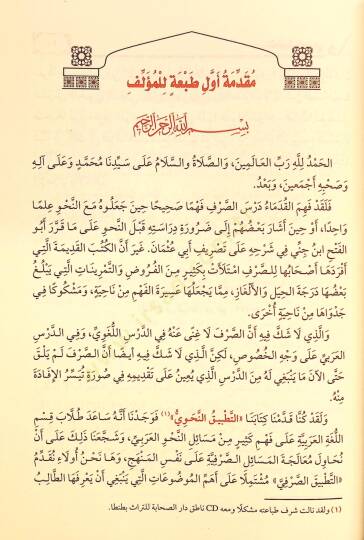 مُقَدِّمَةُ أَوَّلِ طَبْعَةٍ لِلْمُؤَلِّفِ
بِسْمِ اللَّهِ الرَّحْمَنِ الرَّحِيمِ
الحَمْدُ لِلَّهِ رَبِّ العَالَمِينَ، وَالصَّلاَةُ وَالسَّلاَمُ عَلَى سَيِّدِنَا مُحَمَّدٍ وَعَلَى آلِهِ
وَصَحْبِهِ أَجْمَعِينَ، وَبَعْدُ.
فَلَقَدْ فَهِمَ القُدَمَاءُ دَرْسَ الصَّرْفِ فَهْمًا صَحِيحًا حِينَ جَعَلُوهُ مَعَ النَّحْوِ عِلمًا
وَاحِدًا، أَوْ حِينَ أَشَارَ بَعْضُهُمْ إِلَى ضَرُورَةِ دِرَاسَتِهِ قَبْلَ النَّحْوِ عَلَى مَا قَرَّرَ أَبُو
الفَتْحِ ابنُ جِنِّي فِي شَرْحِهِ عَلَى تَصْرِيفِ أَبِي عُثْمَانَ. غَيرَ أَنَّ الكُتُبَ القَدِيمَةَ الَّتِي
أَفْرَدَهَا أَصْحَابُهَا لِلصَّرْفِ امْتَلَأَتْ بِكَثِيرٍ مِنَ الفُرُوضِ وَالتَّمْرِينَاتِ الَّتِي يَبْلُغُ
بَعْضُهَا دَرَجَةَ الحِيَلِ وَالأَلْغَازِ، مِمَّا يَجْعَلُهَا عَسِيرَةَ الفَهْمِ مِنْ نَاحِيَةٍ، وَمَشْكُوكًا فِي
جَدْوَاهَا مِنْ نَاحِيَةٍ أُخْرَى.
وَالَّذِي لاَ شَكَّ فِيهِ أَنَّ الصَّرْفَ لاَ غِنَى عَنْهُ فِي الدَّرْسِ اللُّغَوِيِّ، وَفِي الدَّرْسِ
العَرَبِيِّ عَلَى وَجْهِ الخُصُوصِ، لَكِنَّ الَّذِي لاَ شَكَّ فِيهِ أَيضًا أَنَّ الصَّرْفَ لَمْ يَلْقَ
حَتَّى الآنَ مَا يَنْبَغِي لَهُ مِنَ الدَّرْسِ الَّذِي يُعِينُ عَلَى تَقْدِيمِهِ فِي صُورَةٍ تُيَسِّرُ الإِفَادَةَ
مِنْهُ.
وَلَقَدْ كُنَّا قَدَّمْنَا كِتَابَنَا «التَّطْبِيقُ النَّحْوِيُّ»(١) فَوَجَدْنَا أَنَّهُ سَاعَدَ طُلَّابَ قِسْمِ
اللُّغَةِ العَرَبِيَّةِ عَلَى فَهْمِ كَثِيرٍ مِنْ مَسَائِلِ النَّحْوِ العَرَبِيِّ، وَشَجَّعَنَا ذَلِكَ عَلَى أَنْ
نُحَاوِلَ مُعَالَجَةَ المَسَائِلِ الصَّرْفِيَّةِ عَلَى نَفْسِ المَنْهَجِ، وَهَا نَحْنُ أُولَاءِ نُقَدِّمُ
«التَّطْبِيقَ الصَّرْفِيَّ» مُشْتَمِلًا عَلَى أَهَمِّ المَوْضُوعَاتِ الَّتِي يَنْبَغِي أَنْ يَعْرِفَهَا الطَّالِبُ
(١) ولقد نالت شرف طباعته مشكلًا ومعه CD ناطق دار الصحابة للتراث بطنطا.